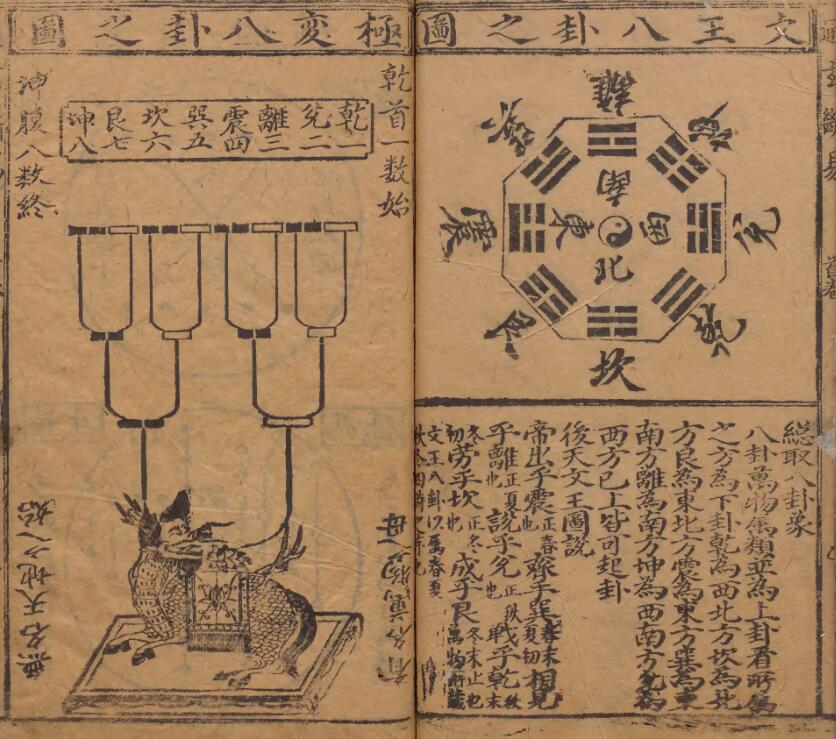 文王八卦之圖
離
坤
兌
乾
坎
艮
震
巽
南
西
北
東
總取八卦象
八卦萬物屬類並為上卦看所屬
之方為下卦乾為西北方坎為北
方艮為東北方震為東方巽為東
南方離為南方坤為西南方兌為
西方已上皆可起卦
後天文王圖說
帝出乎震正春也齊乎巽春末夏初相見
乎離正夏也說乎兌正秋也戰乎乾秋末
冬初勞乎坎正冬也成乎艮冬末止也萬物所
文王八卦以屬春夏
秋冬四時之序
極変八卦之圖
乾首一数始
乾一
兌二
離三
震四
巽五
坎六
艮七
坤八
坤腹八数終
有名萬物之母
無名天地之始